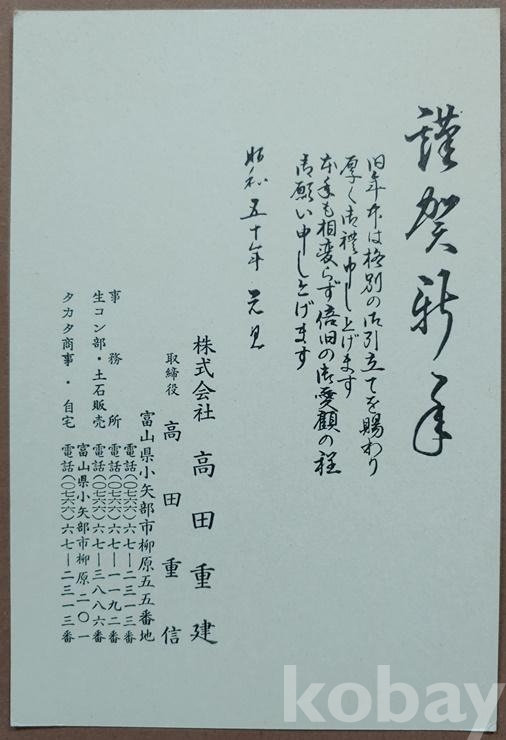 謹賀新年
旧年中は格別の御引立てを賜わり
厚く御禮申し上げます
本年も相変らず倍旧の御愛顧の程
御願い申し上げます
昭和五十年 元旦
株式会社 高田重建
取締役 高田重信
富山県小矢部市柳原五五番地
電話(〇七六六)六七―二三一三番
事務所 電話(〇七六六)六七―一一九二番
生コン部・土石販売 電話(〇七六六)六七―三八八六番
富山県小矢部市柳原二〇一
タカタ商事・自宅 電話(〇七六六)六七―二三一三番
kobay